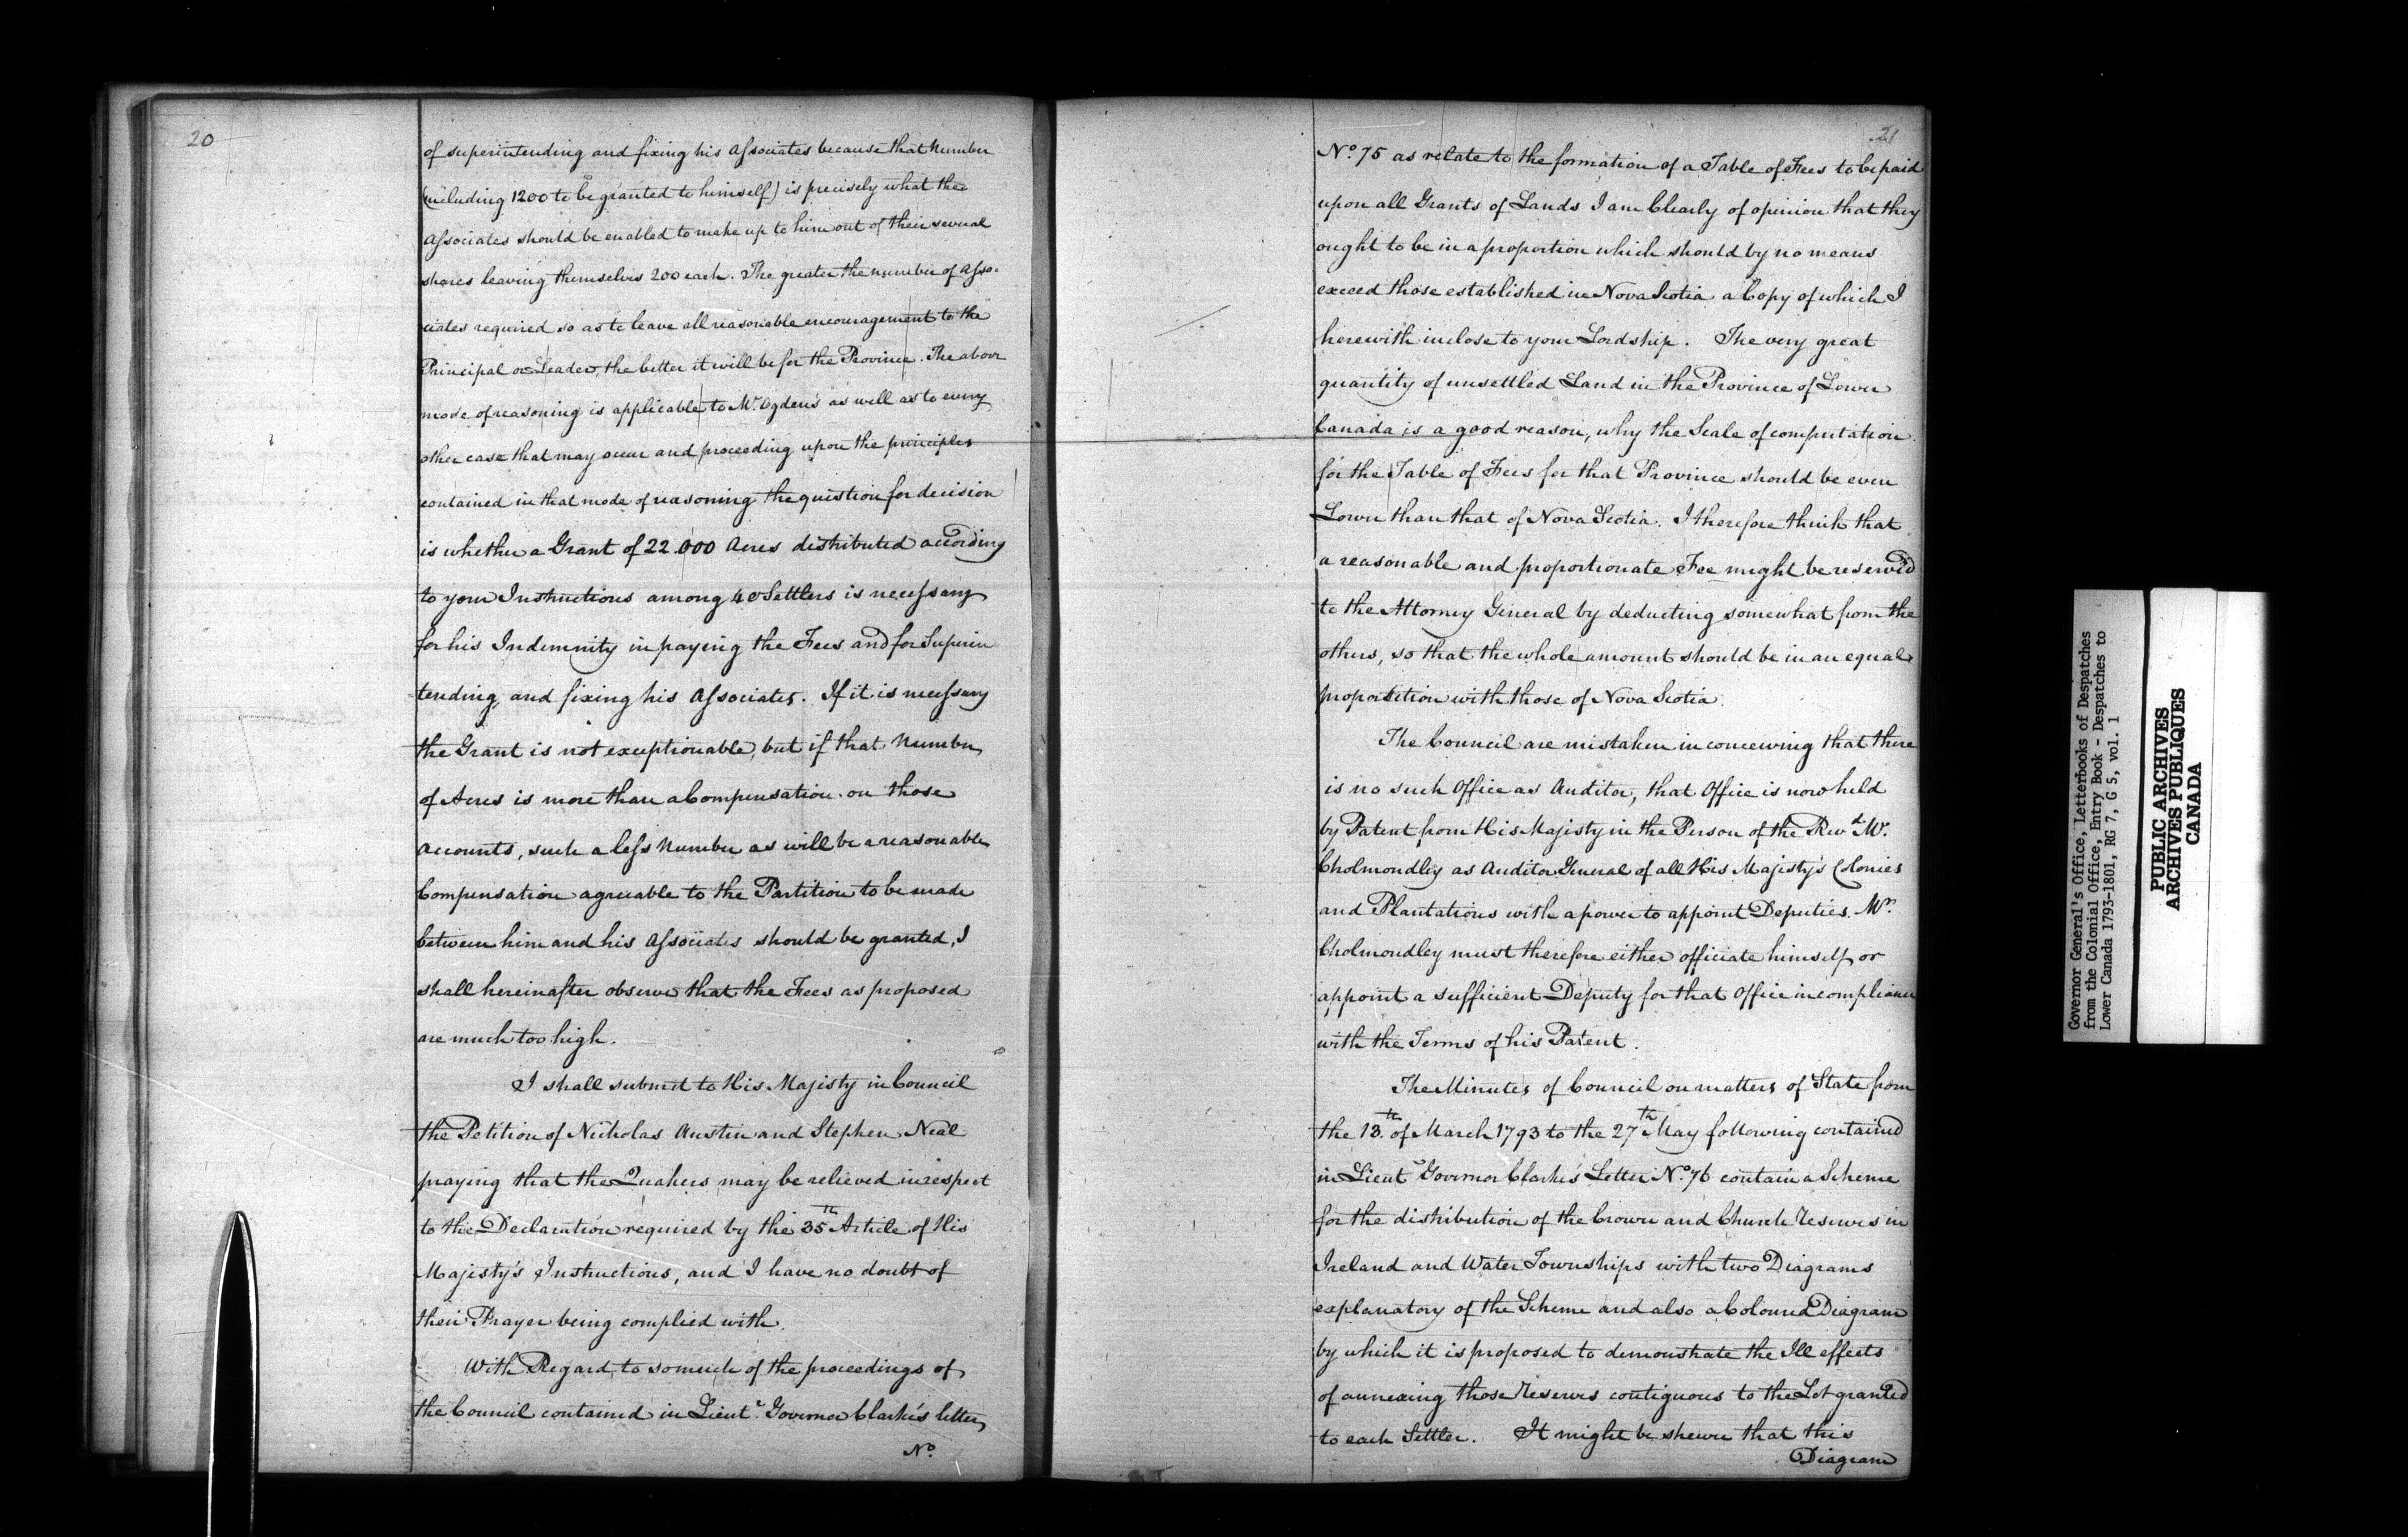 20
of superintending and fixing his Associates because that Number
(including 1200 to be granted to himself) is precisely what the
Associates should be enabled to make up to him out of their several
shares leaving themselves 200 each. The greater the number of Asso-
ciates required so as to leave all reasonable encouragement to the
Principal or Leader, the better it will be for the Province. The above
mode of reasoning is applicable to Mr. Ogden's as well as to every
other case that may occur and proceeding upon the principles
contained in that mode of reasoning the question for decision
is whether a Grant of 22.000 Acres distributed according
to your Instructions among 40 Settlers is necessary
for his Indemnity in paying the Fees and for Superin
tending and fixing his Associates. If it is necessary
the Grant is not exceptionable, but if that Number
of Acres is more than a Compensation on those
Accounts, such a less Number as will be a reasonable
Compensation agreeable to the Partition to be made
between him and his Associates should be granted, I
shall hereinafter observe that the Fees as proposed
are much too high.
I shall submit to His Majesty in Council
the Petition of Nicholas Austin and Stephen Neal
praying that the Quakers may be relieved in respect
to the Declaration required by the 35th Article of His
Majesty's Instructions, and I have no doubt of
their Prayer being complied with.
With Regard to so much of the proceedings of
the Council contained in Lieut. Governor Clarke's letter
No.
21
No. 75 as relate to the formation of a Table of Fees to be paid
upon all Grants of Lands I am Clearly of opinion that they
ought to be in a proportion which should by no means
exceed those established in Nova Scotia a Copy of which I
herewith inclose to your Lordship. The very great
quantity of unsettled Land in the Province of Lower
Canada is a good reason, why the Scale of computation
for the Table of Fees for that Province should be even
Lower than that of Nova Scotia. I therefore think that
a reasonable and proportionate Fee might be reserved
to the Attorney General by deducting somewhat from the
others, so that the whole amount should be in an equal
proportition with those of Nova Scotia.
The Council are mistaken in conceiving that there
is no such Office as Auditor, that Office is now held
by Patent from His Majesty in the Person of the Revd. Mr.
Cholmondley as Auditor General of all His Majesty's Colonies
and Plantations with a power to appoint Deputies. Mr.
Cholmondley must therefore either officiate himself or
appoint a sufficient Deputy for that Office in compliance
with the Terms of his Patent.
The Minutes of Council on matters of State from
the 13th. of March 1793 to the 27th May following contained
in Lieut. Governor Clarke's Letter No. 76 contain a Scheme
for the distribution of the Crown and Church Reserves in
Ireland and Water Townships with two Diagrams
explanatory of the Scheme and also a Coloured Diagram
by which it is proposed to demonstrate the Ill effects
of annexing those Reserves contiguous to the Lot granted
to each Settler. It might be shewn that this
Diagram
Governor General's Office, Letterbooks of Despatches
from the Colonial Office, Entry Book - Despatches to
Lower Canada 1793-1801, RG 7, G 5, vol. 1
PUBLIC ARCHIVES
ARCHIVES PUBLIQUES
CANADA